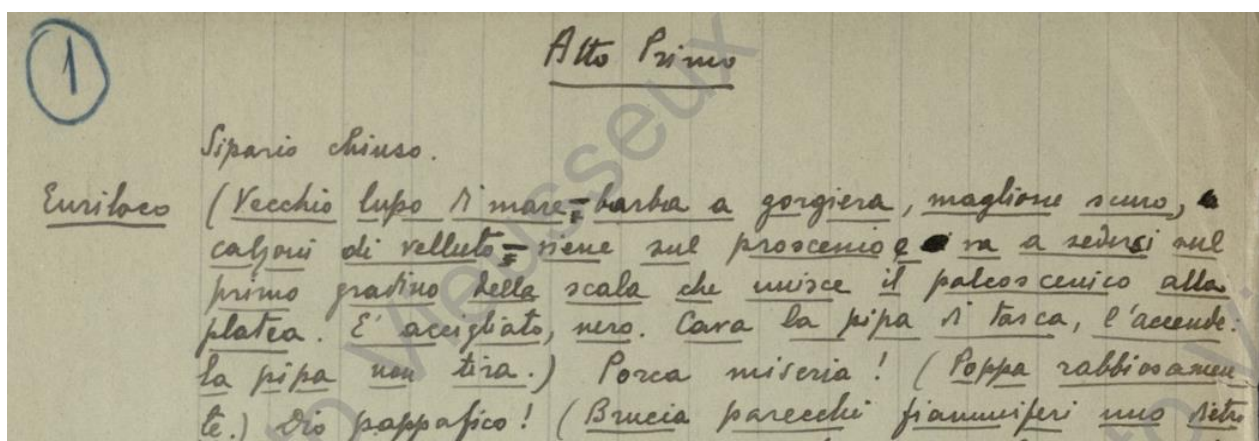 1
Atto Primo
Sipario chiuso.
Euriloco (Vecchio lupo di mare - barba a gorgiera, maglione scuro,
calzoni di velluto - viene sul proscenio e va a sedersi sul
primo gradino della scala che unisce il palcoscenico alla
platea. E' accigliato, nero. Cava la pipa di tasca, l'accende.
la pipa non tira.) Porca miseria! (Poppa rabbiosamen
te.) Dio pappafico! (Brucia parecchi fiammiferi uno dietro